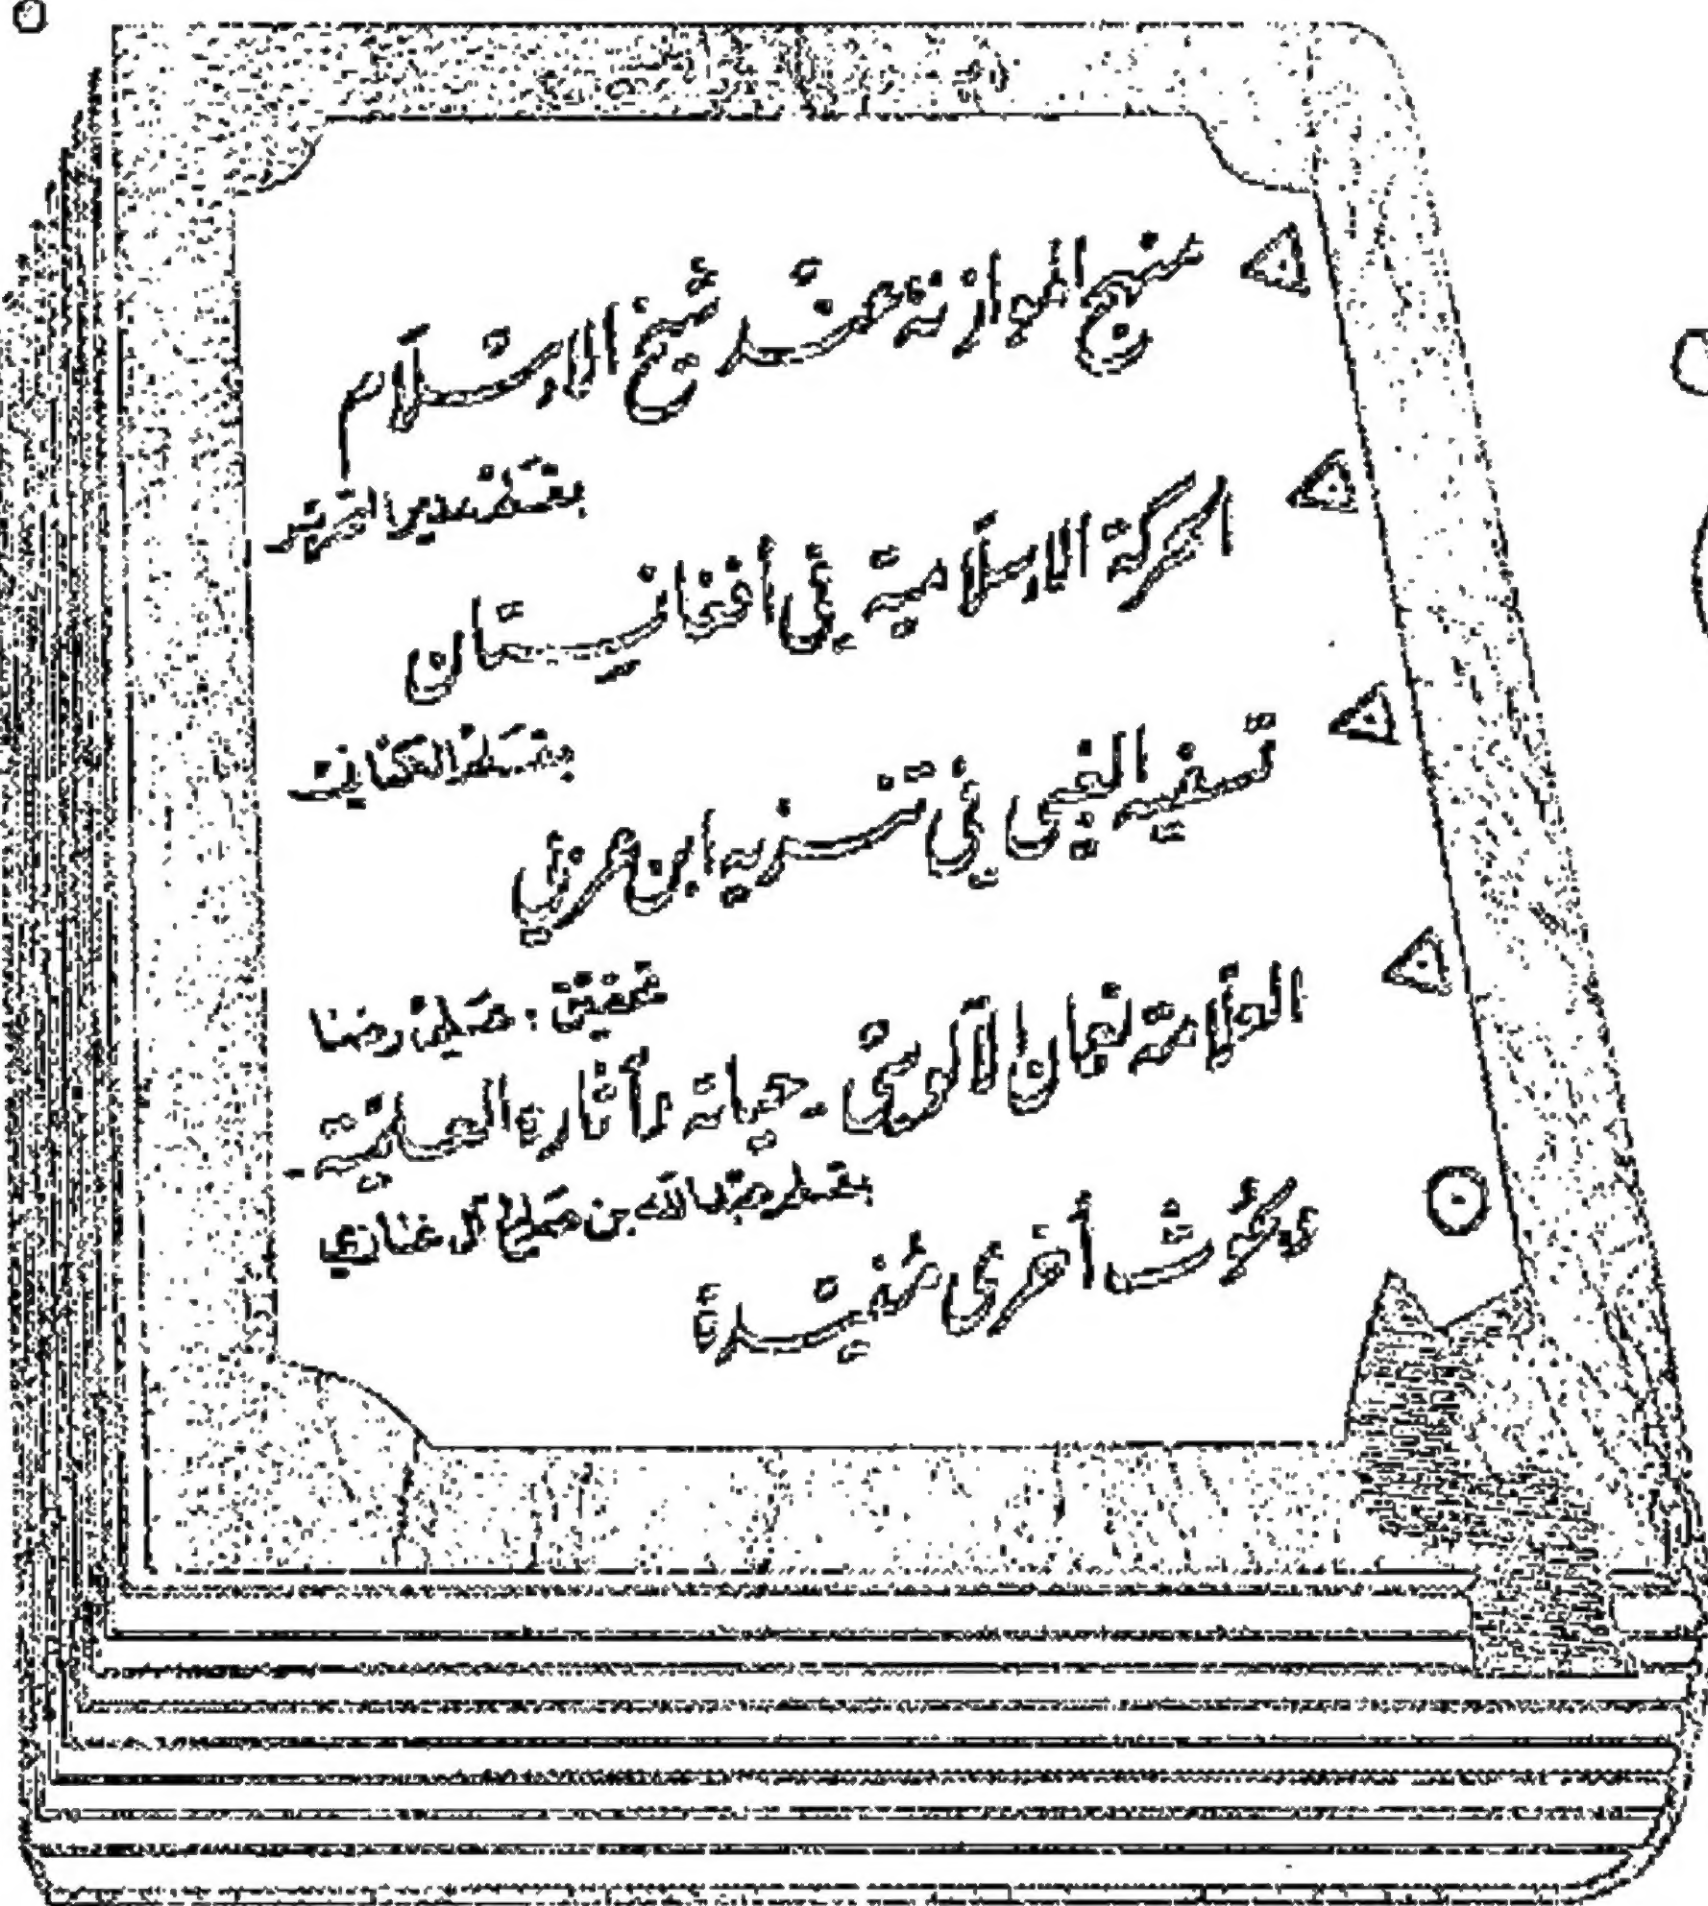 منهج الموازنة عند شيخ الإسلام
بقلم مدير التحرير
الحركة الإسلامية في أفغانستان
بقلم
تسفيه الغبي في تنزيه ابن عربي
تحقيق : علي رضا
العلامة نعمان الآلوسي - حياته وآثاره العلمية -
بقلم عبد الله بن صالح آل غازي
وبحوث أخرى مفيدة